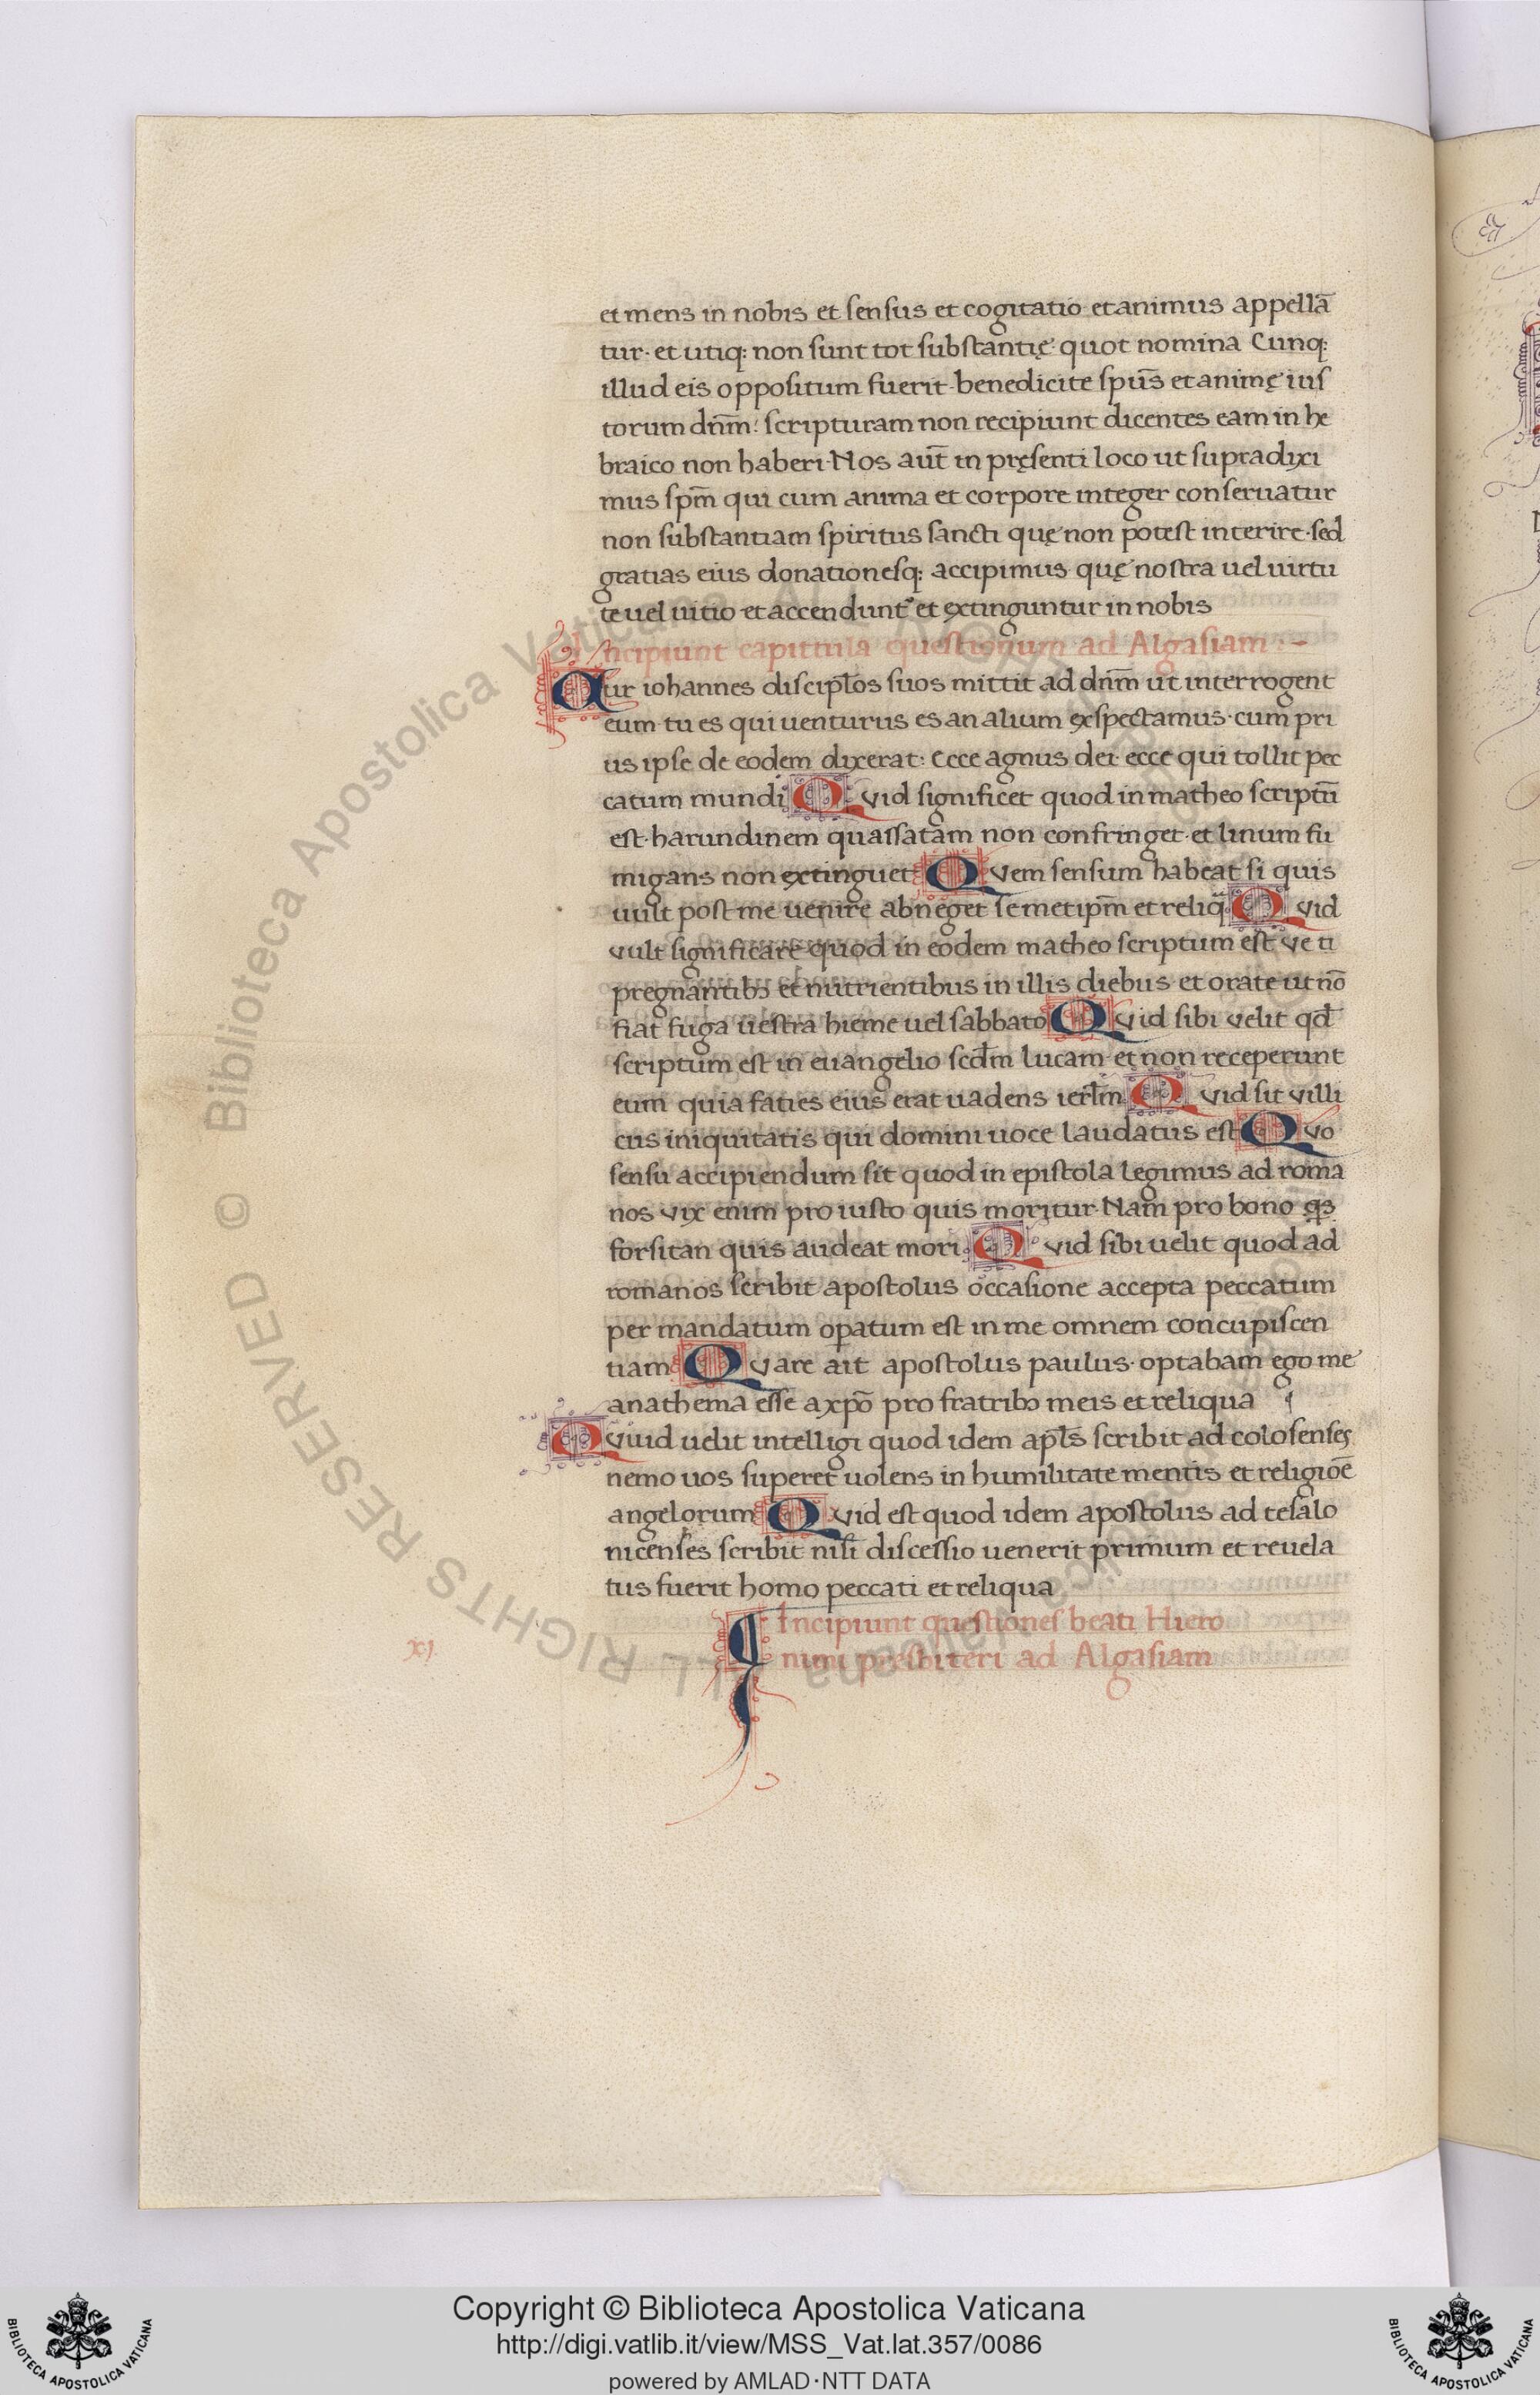 et mens in nobis et sensus et cogitatio et animus appellā
tur· et utiq: non sunt tot substantię quot nomina Cunq:
illud eis oppositum fuerit· benedicite spūs et animę ius
torum dn̄m: scripturam non recipiunt dicentes eam in he
braico non haberi· Nos aut̄ in pręsenti loco ut supradixi
mus spm̄ qui cum anima et corpore integer conseruatur
non substantiam spiritus sancti quę non potest interire· sed
gratias eius donationesq: accipimus quę nostra uel uirtu
te uel uitio et accendunt᷑ et extinguntur in nobis
Incipiunt capittula questionum ad Algasiam :-
Cur iohannes discipl̄os suos mittit ad dn̄m ut interrogent
eum· tu es qui uenturus es an alium exspectamus· cum pri
us ipse de eodem dixerat: Ecce agnus dei· ecce qui tollit pec
catum mundi Quid significet quod in matheo scriptū
est· harundinem quassatam non confringet· et linum fu
migans non extinguet Quem sensum habeat si quis
uult post me uenire abneget semetipm̄ et reliq̄ Quid
vult significare quod in eodem matheo scriptum est ve ti
pregnantibꝫ et nutrientibus in illis diebus· et orate ut nō
fiat fuga uestra hieme uel sabbato Quid sibi velit qd̄
scriptum est in euangelio scd̄m lucam· et non receperunt
eum quia faties eius erat uadens ierl̄m Quid sit villi
cus iniquitatis qui domini uoce laudatus est Quo
sensu accipiendum sit quod in epistola legimus ad roma
nos vix enim pro iusto quis moritur· Nam pro bono
forsitan quis audeat mori. Quid sibi uelit quod ad
romanos scribit apostolus occasione accepta peccatum
per mandatum opatum est in me omnem concupiscen
tiam Quare ait apostolus paulus· optabam ego me
anathema esse a xpō pro fratribꝫ meis et reliqua
Quid uelit intelligi quod idem apl̄s scribit ad colosenses
nemo uos superet uolens in humilitate mentis et religiōe
angelorum Quid est quod idem apostolus ad tesalo
nicenses scribit nisi discessio uenerit primum et reuela
tus fuerit homo peccati et reliqua
Incipiunt questiones beati Hiero
nimi presbiteri ad Algasiam
xj
Biblioteca Apostolica Vaticana
ALL RIGHTS RESERVED ©
Copyright © Biblioteca Apostolica Vaticana
http://digi.vatlib.it/view/MSS_Vat.lat.357/0086
powered by AMLAD·NTT DATA
BIBLIOTECA APOSTOLICA VATICANA
BIBLIOTECA APOSTOLICA VATICANA